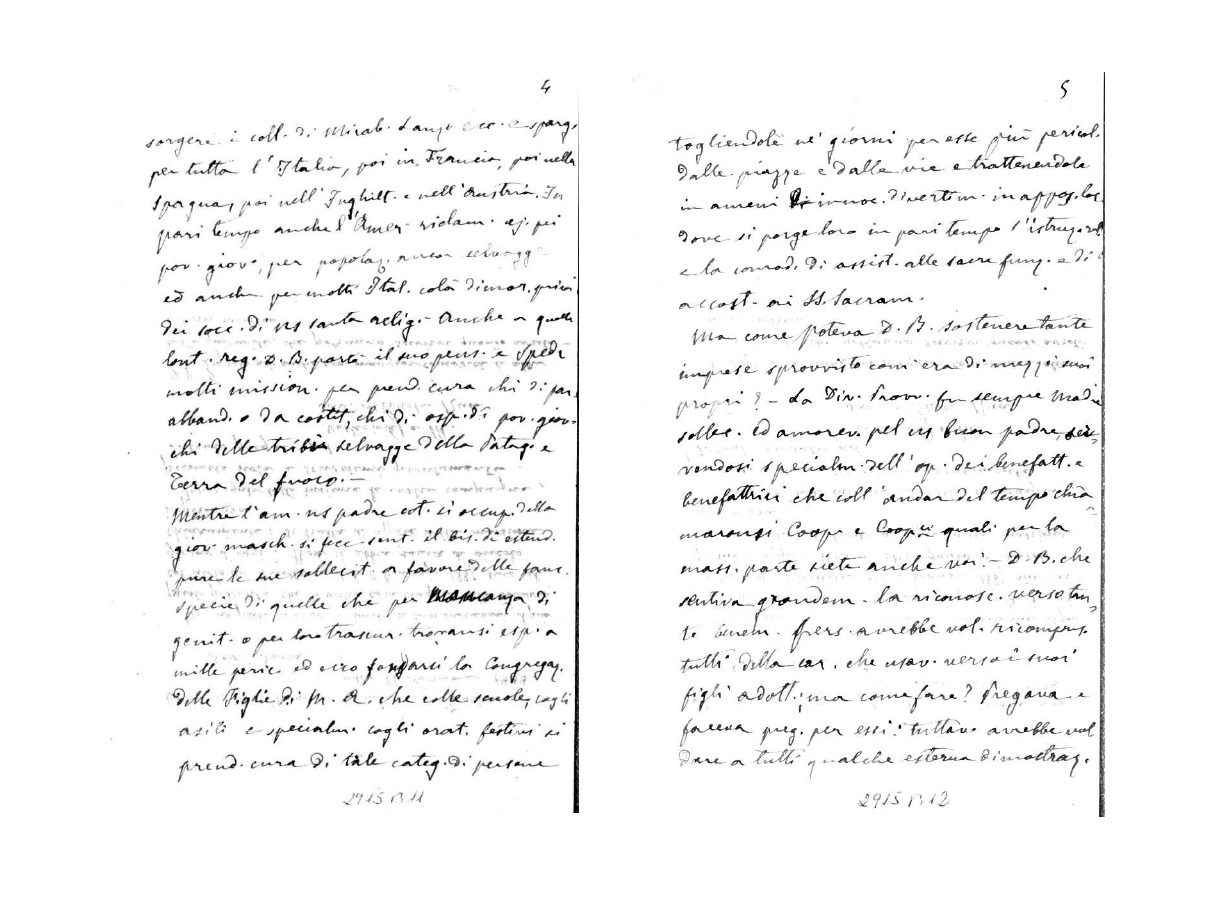 4
sorgere i coll. di Mirab. Lanzo ecc. e sparg.
per tutta l'Italia, poi in Francia, poi nella
Spagna, poi nell'Inghilt. e nell'Austria. In
pari tempo anche l'Amer. riclam. aj. pei
pov. giov., per popolaz. ancor selvagg.
ed anche per molti Ital. colà dimor. privi
dei socc. di ns santa relig. Anche a quelle
lont. reg. D. B. portò il suo pens. e spedì
molti mission. per prend. cura chi di par.
abband. o da costit., chi di osp. di pov. giov.
chi delle tribù selvagge della Patag. e
Terra del fuoco. –
Mentre l'am. ns padre cot. si occup. della
giov. masch. si fece sent. il bis. di estend.
pure le sue sollecit. a favore delle fanc.
specie di quelle che per mancanza di
genit. o per loro trascur. trovansi esp. a
mille peric. ed ecco fondarsi la Congregaz.
delle Figlie di M. A. che colle scuole, cogli
asili e specialm. cogli orat. festivi si
prend. cura di tale categ. di persone
2915 B 11
5
togliendole ne' giorni per esse più pericol.
dalle piazze e dalle vie e trattenendole
in ameni innoc. divertim. in appos. loc.
dove si porge loro in pari tempo l'istruz. rel.
e la comod. di assist. alle sacre funz. e di
accost. ai SS. Sacram.
Ma come poteva D. B. sostenere tante
imprese sprovvisto com'era di mezzi suoi
propri? – La Div. Provv. fu sempre madre
sollec. ed amorev. pel ns buon padre, ser-
vendosi specialm. dell'op. dei benefatt. e
benefattrici che coll'andar del tempo chia-
maronsi Coop. e Coop.ci quali per la
mass. parte siete anche voi. – D. B. che
sentiva grandem. la riconosc. verso tan-
te benem. pers. avrebbe vol. ricompens.
tutti della car. che usav. verso i suoi
figli adott.; ma come fare? Pregava e
faceva preg. per essi: tuttav. avrebbe vol.
dare a tutti qualche esterna dimostraz.
2915 B 12